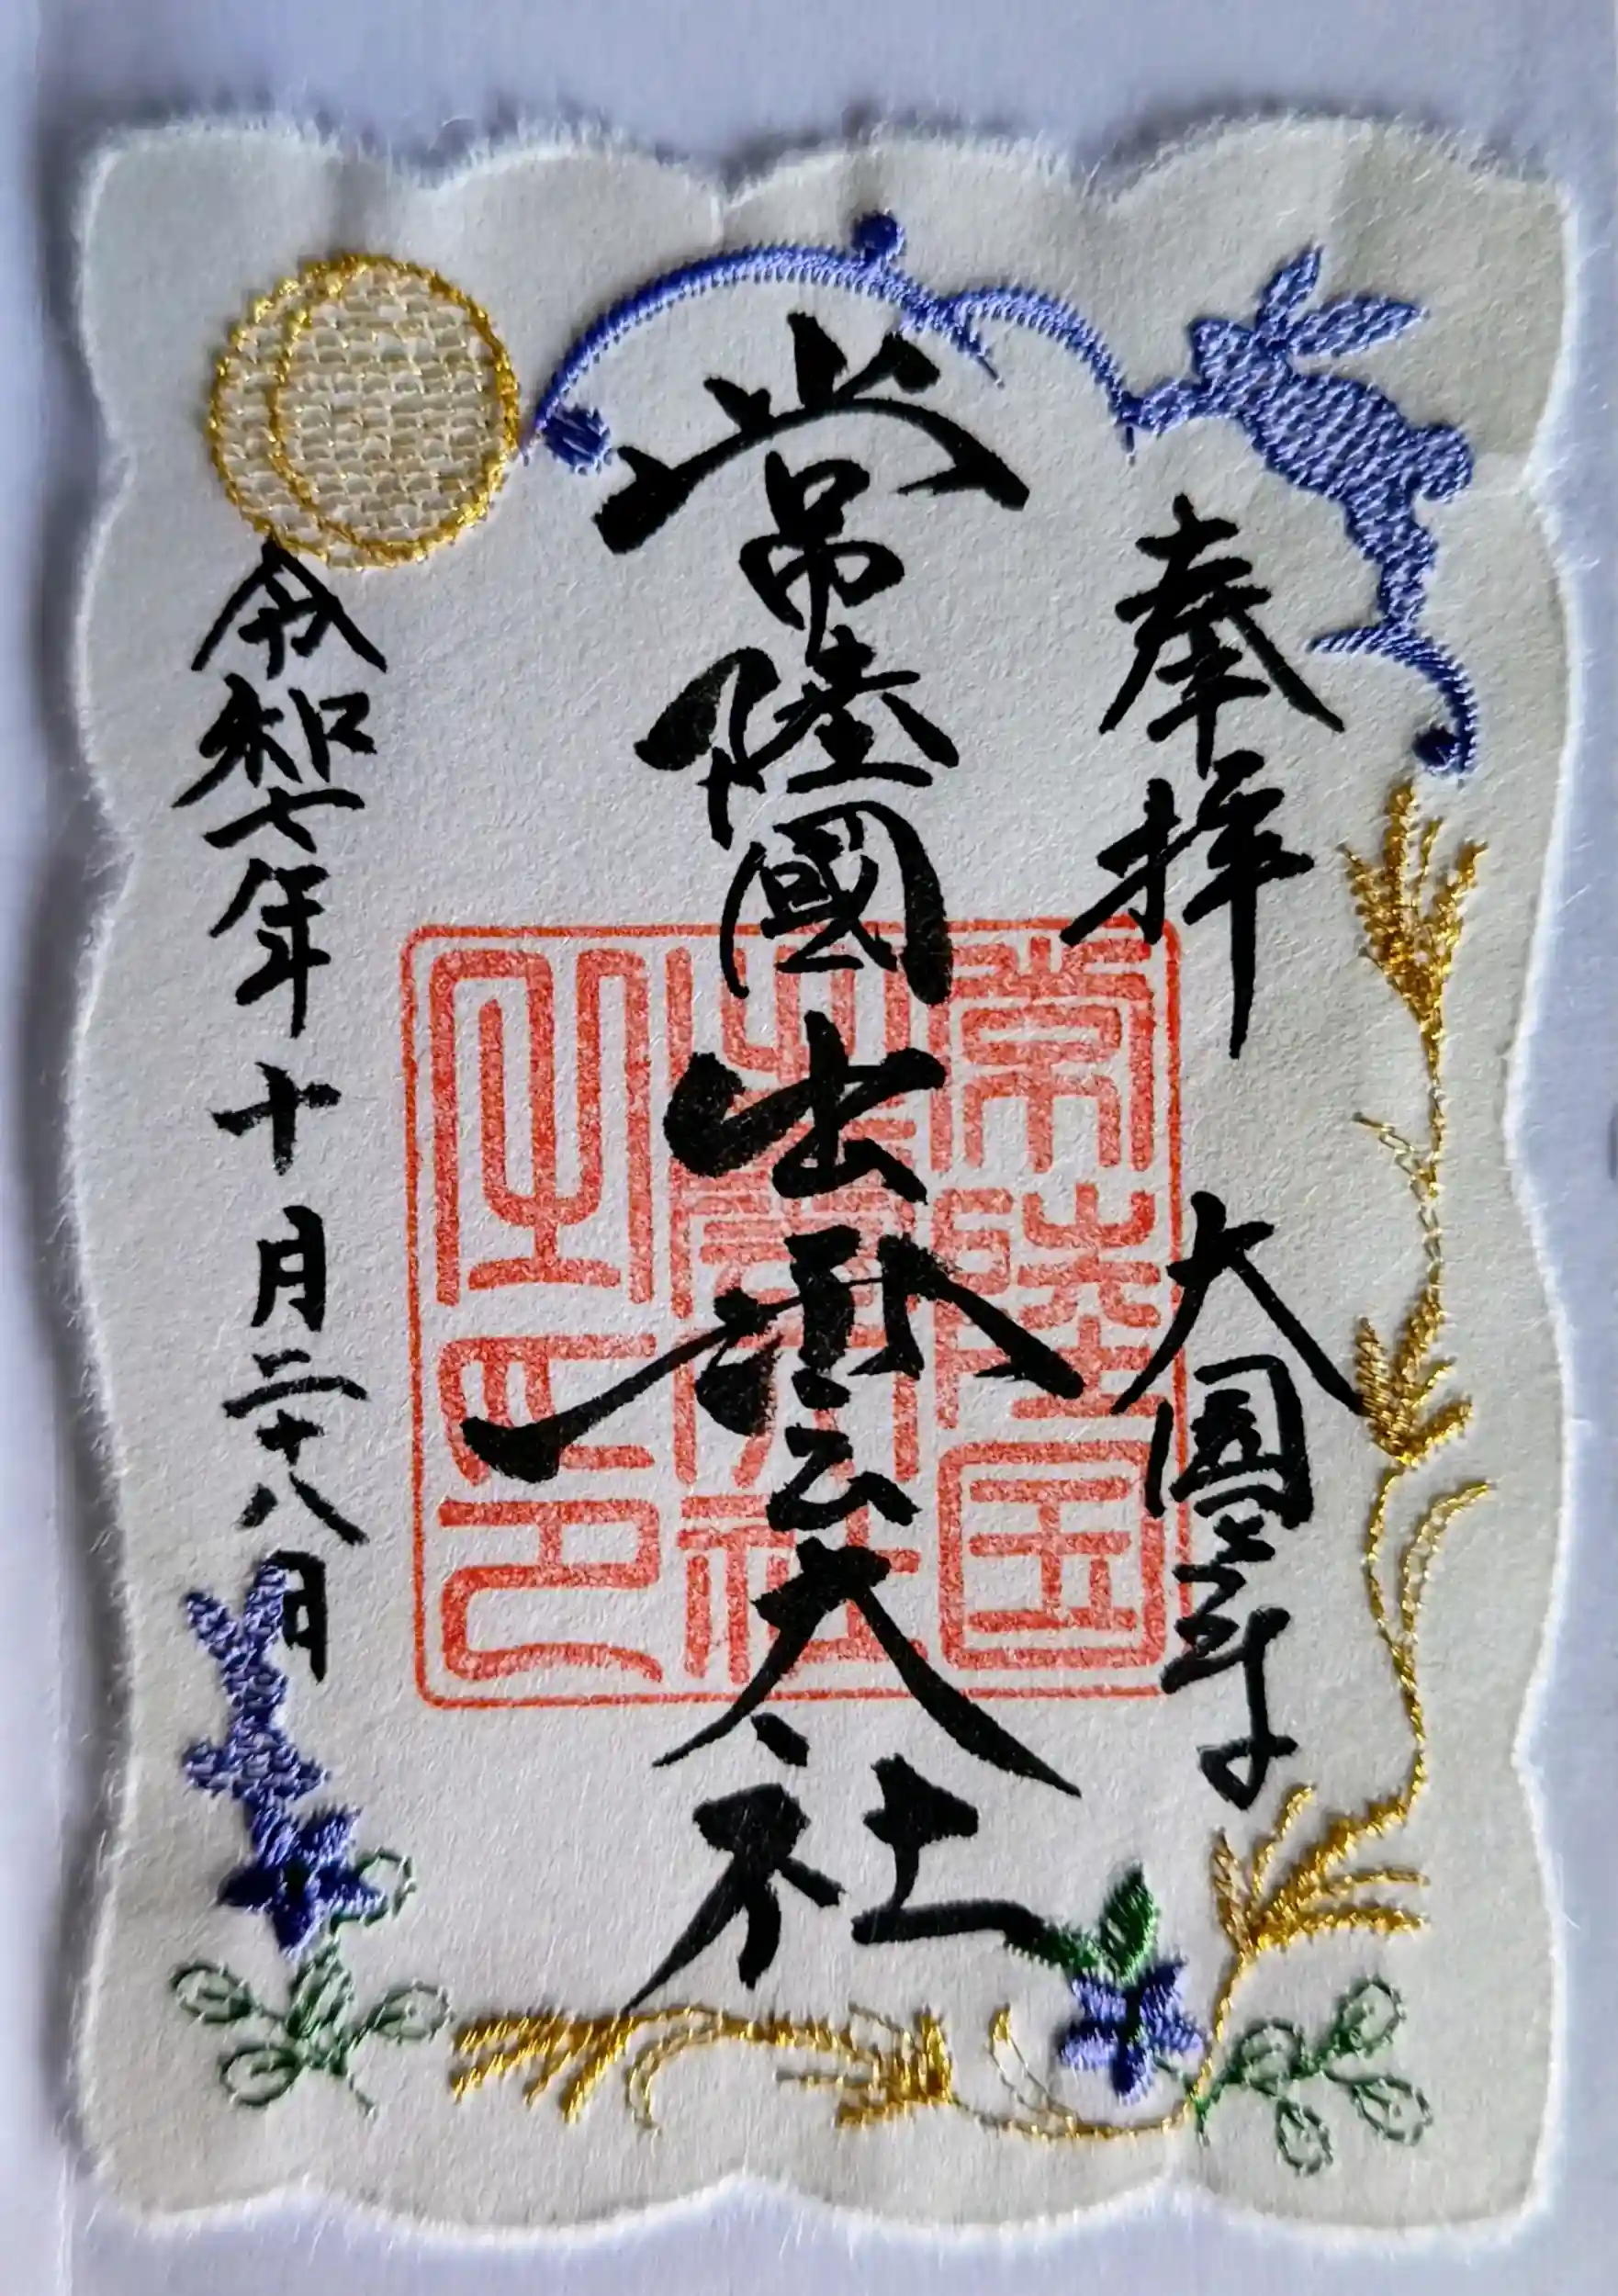 奉拝 大國
常陸國出雲大社
令和七年十月二十八日
常陸国
出雲大社
之印